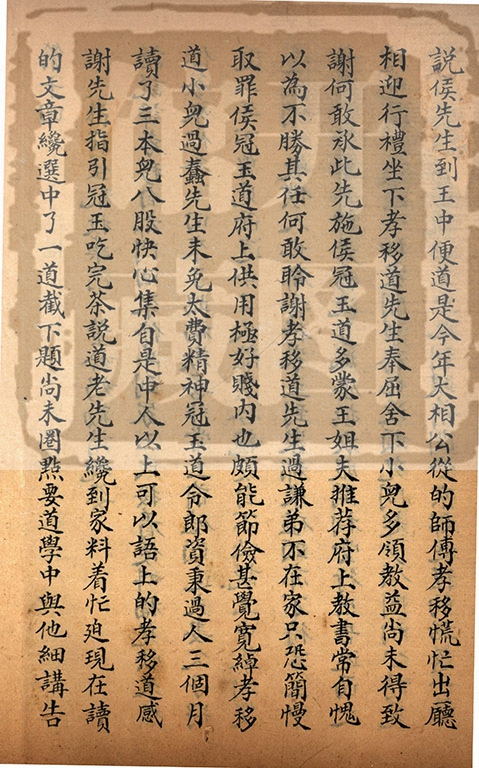 說侯先生到王中便道是今年大相公從的師傅孝移慌忙出廳
相迎行禮坐下孝移道先生奉屈舍下小兒多領教益尚未得致
謝何敢承此先施侯冠玉道多蒙王姐夫推荐府上教書常自愧
以為不勝其任何敢聆謝孝移道先生過謙弟不在家只恐簡慢
取罪侯冠玉道府上供用極好賤內也頗能節儉甚覺寬綽孝移
道小兒過蠢先生未免太費精神冠玉道令郎資秉過人三個月
讀了三本兒八股快心集自是中人以上可以語上的孝移道感
謝先生指引冠玉吃完茶說道老先生纔到家料着忙廹現在讀
的文章纔選中了一道截下題尚未圈㸃要道學中與他細講告